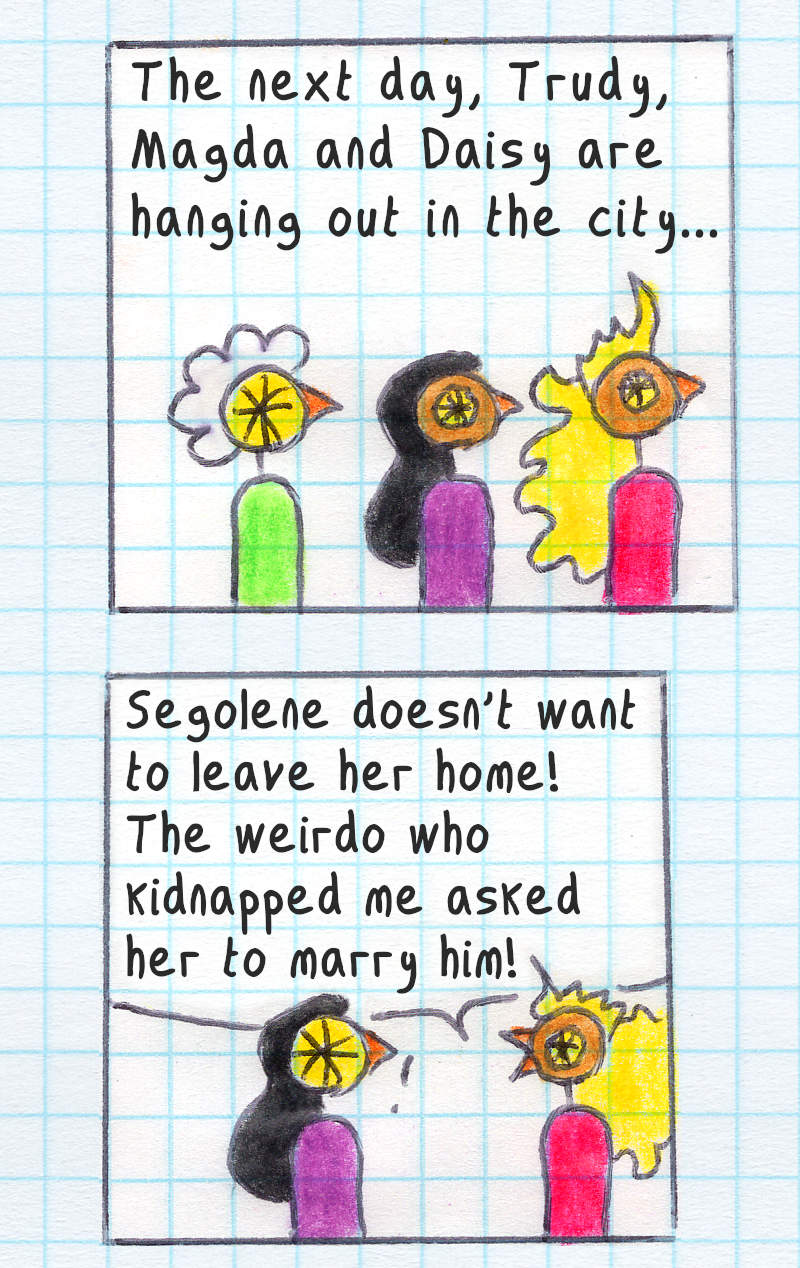 The next day, Trudy,
Magda and Daisy are
hanging out in the city...
Segolene doesn't want
to leave her home!
The weirdo who
kidnapped me asked
her to marry him!
!